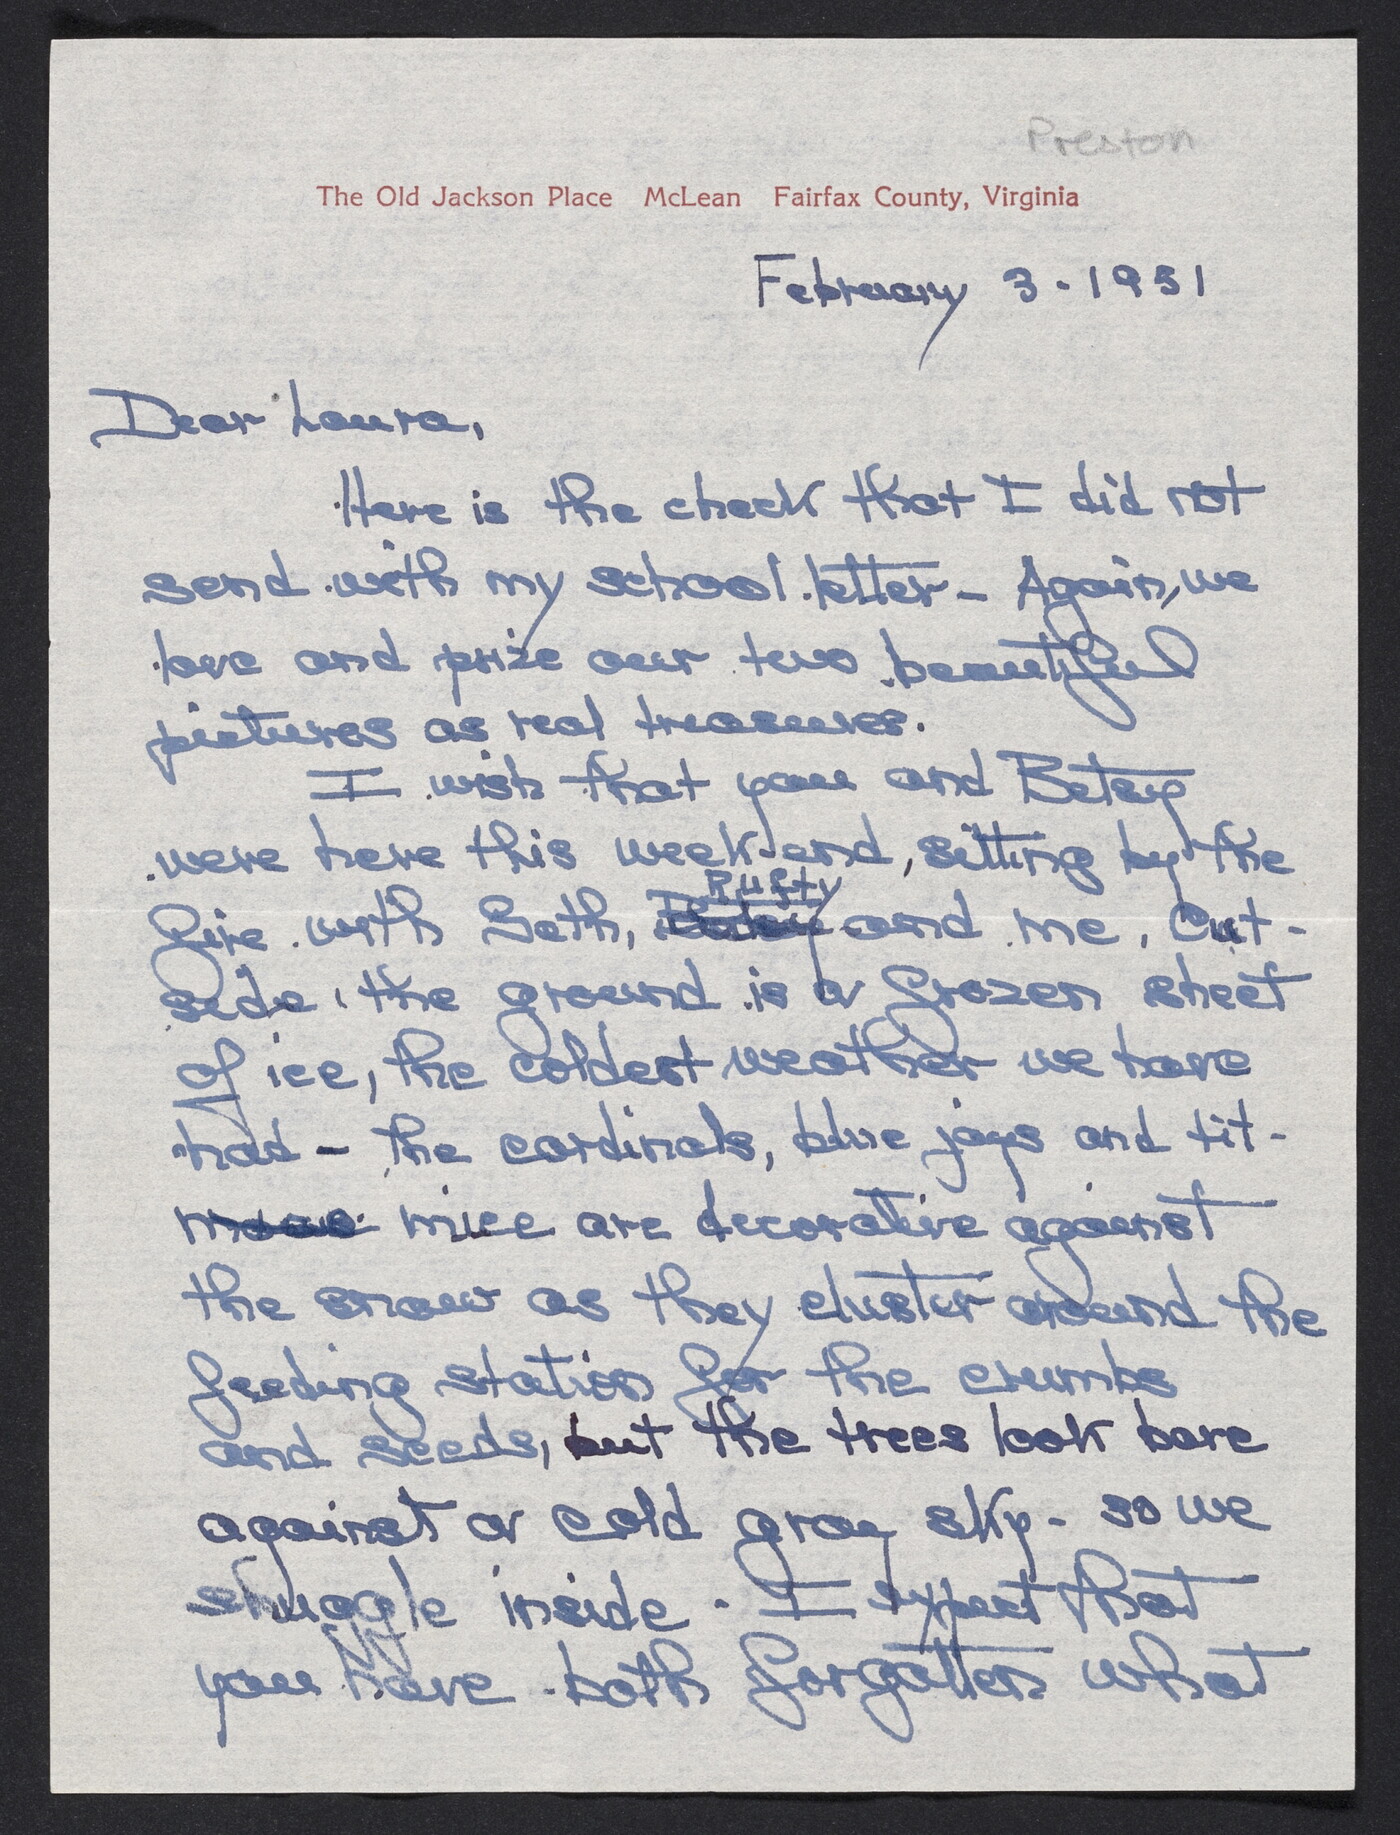 Preston
The Old Jackson Place McLean Fairfax County, Virginia
February 3 - 1951
Dear Laura,
Here is the check that I did not
send with my school letter - Again, we
love and prize our two beautiful
pictures as real treasures.
I wish that you and Betsy
were here this week-end, sitting by the
Rufty
fire with Seth, and me. Out-
side, the ground is a frozen sheet
of ice, the coldest weather we have
had - the cardinals, blue jays and tit-
mice are decorative against
the snow as they cluster around the
feeding station for the crumbs
and seeds, but the trees look bare
against a cold gray sky - so we
snuggle inside. I expect that
you have both forgotten what